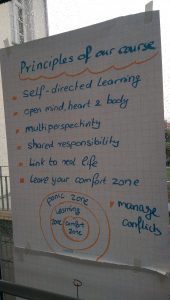 Principles of our course
Self-directed learning
open mind, heart & body
multiperspectivity
shared responsibility
Link to real life
Leave your comfort zone
panic zone
learning
zone
comfort
zone
manage
conflicts